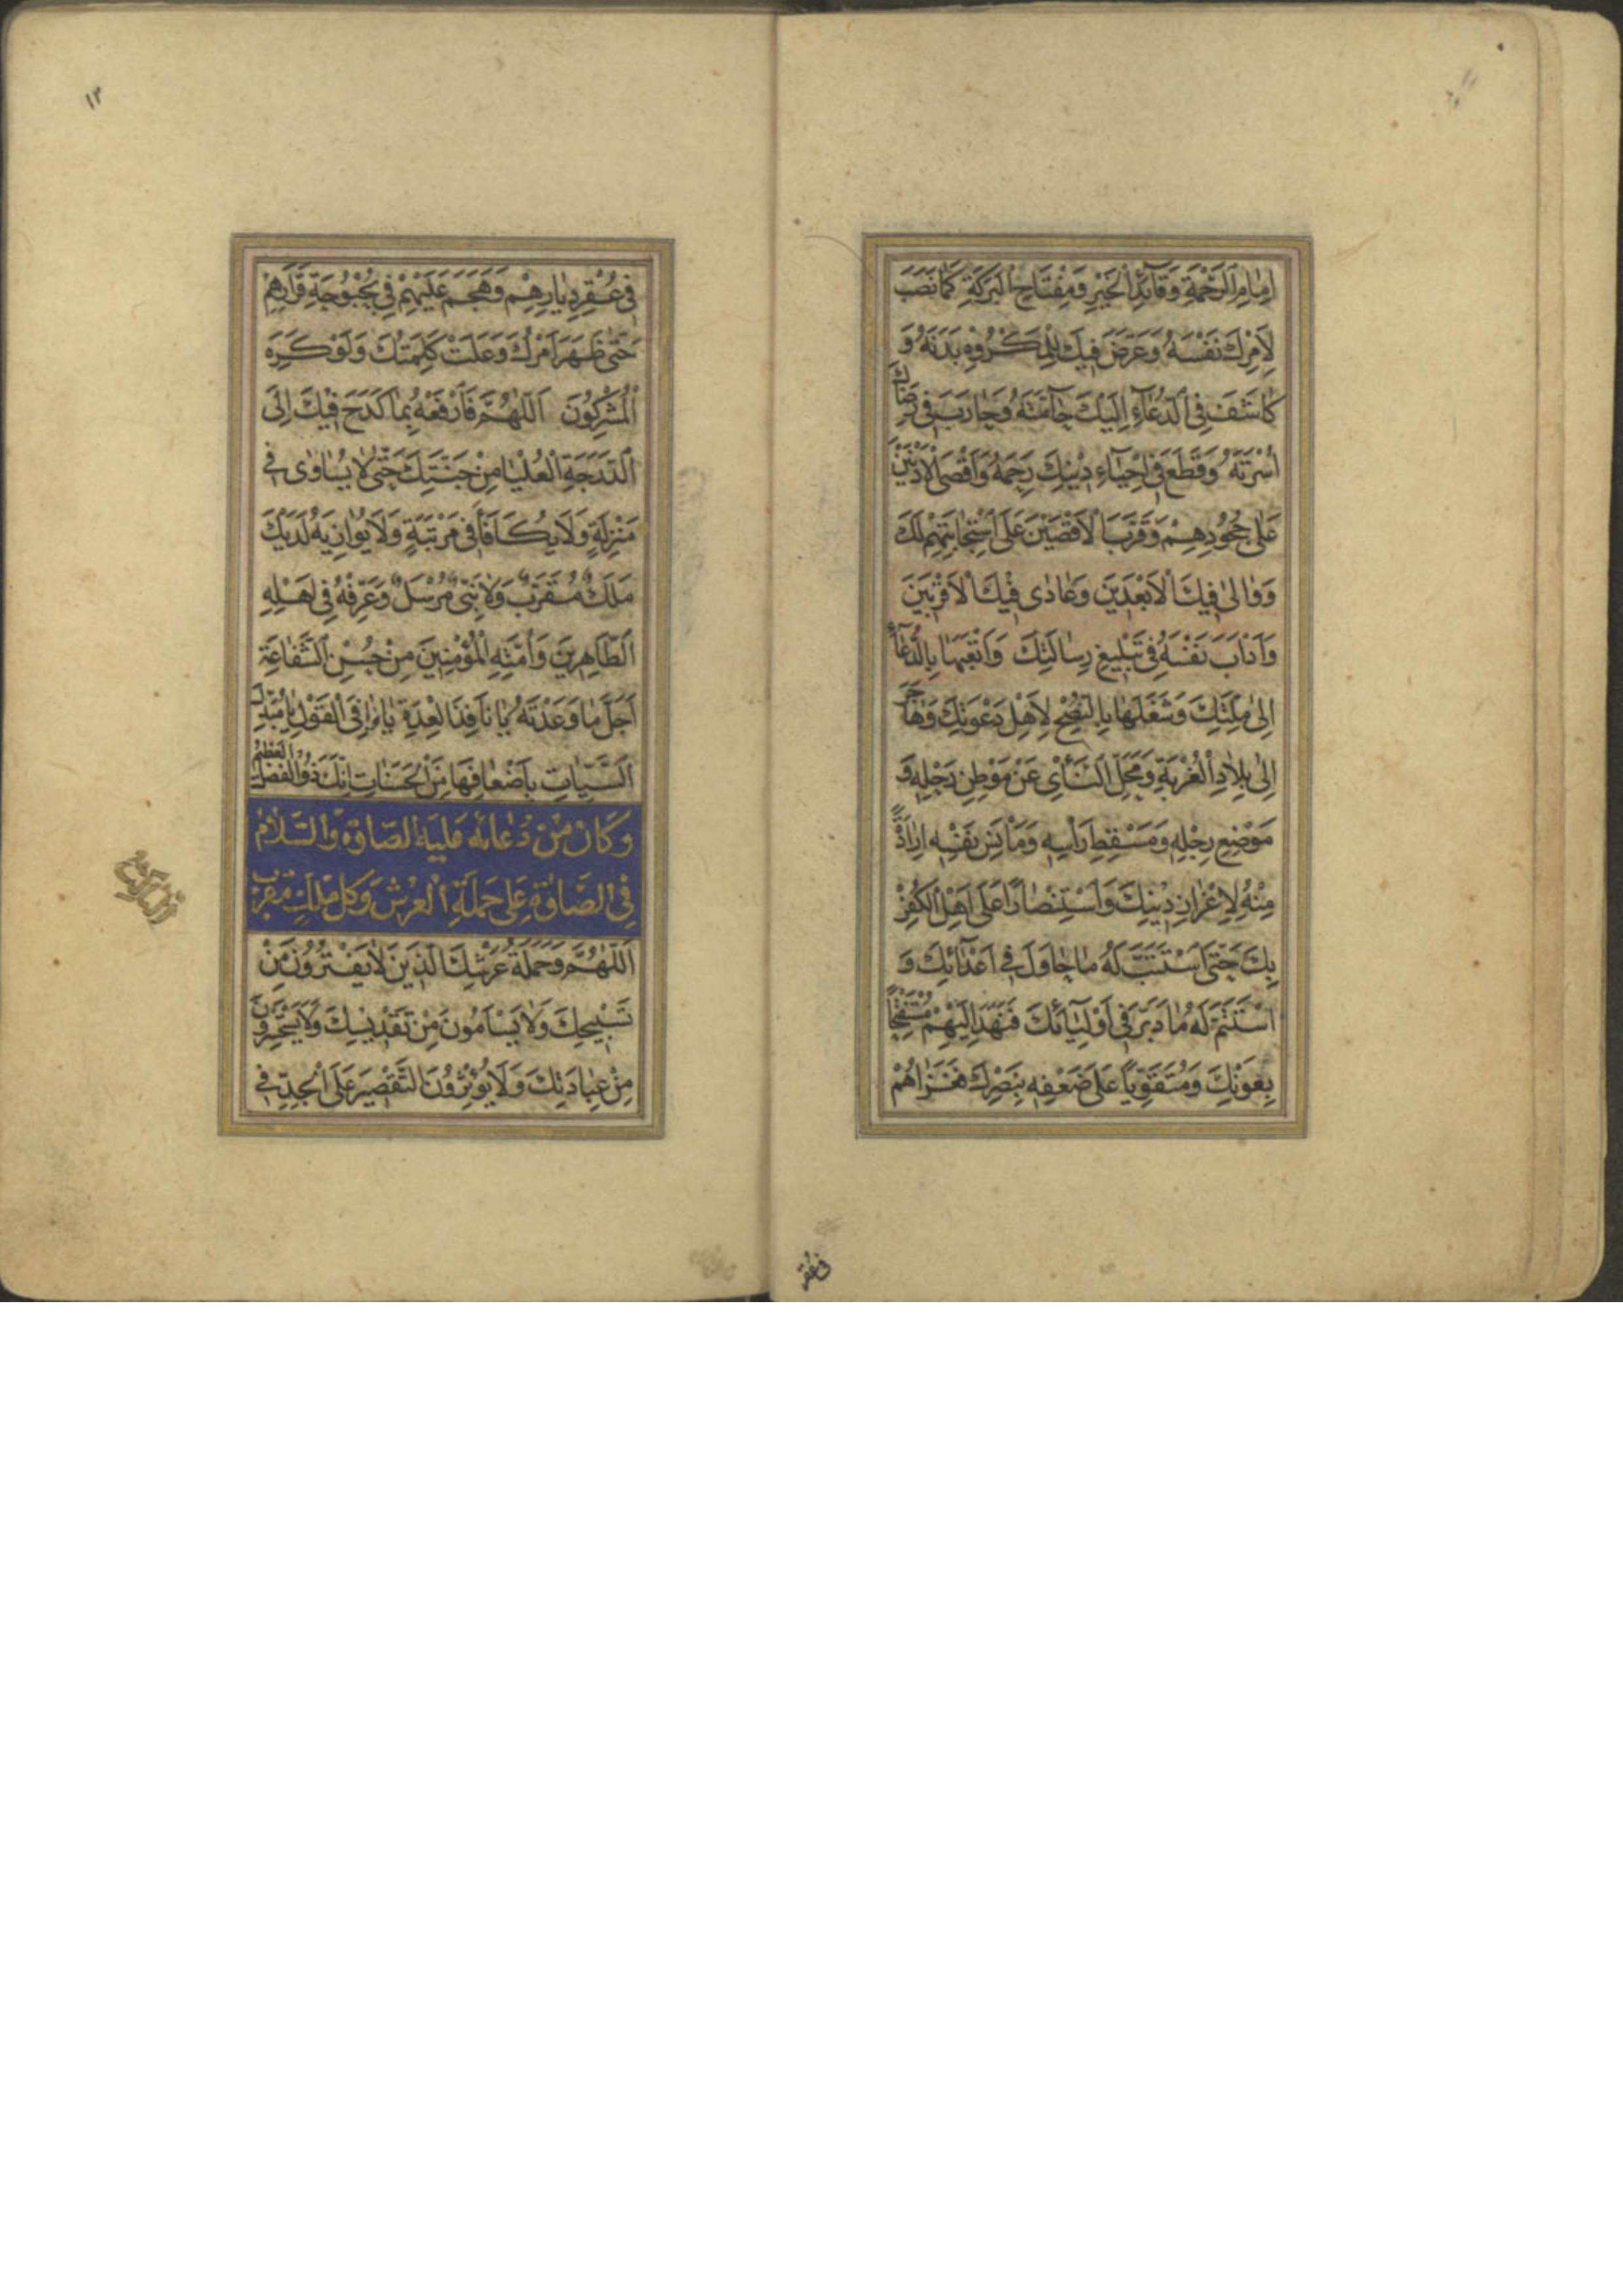 اِمٰامِ الرَّحْمَةِ وَقٰآئِدِ الْخَيْرِ وَمِفْتٰاحِ الْبَرَكَةِ كَمٰا نَصَبَ
لِاَمْرِكَ نَفْسَهُ وَعَرَّضَ فيكَ لِلْمَكْرُوهِ بَدَنَهُ وَ
كٰاشَفَ فِى الدُّعٰآءِ اِلَيْكَ حٰآمَّتَهُ وَحٰارَبَ فى رِضٰاكَ
اُسْرَتَهُ وَقَطَعَ فى اِحْيٰآءِ دينِكَ رَحِمَهُ وَاَقْصَى الْاَدْنَيْنَ
عَلىٰ جُحُودِهِمْ وَقَرَّبَ الْاَقْصَيْنَ عَلَى اسْتِجٰابَتِهِمْ لَكَ
وَوٰالىٰ فيكَ الْاَبْعَدينَ وَعٰادٰى فيكَ الْاَقْرَبينَ
وَاَدْاَبَ نَفْسَهُ فى تَبْليغِ رِسٰالَتِكَ وَاَتْعَبَهٰا بِالدُّعٰآءِ
اِلىٰ مِلَّتِكَ وَشَغَلَهٰا بِالنُّصْحِ لِاَهْلِ دَعْوَتِكَ وَهٰاجَرَ
اِلىٰ بِلٰادِ الْغُرْبَةِ وَمَحَلِّ النَّأْىِ عَنْ مَوْطِنِ رَحْلِهِ وَ
مَوْضِعِ رِجْلِهِ وَمَسْقَطِ رَأْسِهِ وَمَأْنَسِ نَفْسِهِ اِرٰادَةً
مِنْهُ لِاِعْزٰازِ دينِكَ وَاسْتِنْصٰارًا عَلىٰ اَهْلِ الْكُفْرِ
بِكَ حَتَّى اسْتَتَبَّ لَهُ مٰا حٰاوَلَ فى اَعْدٰآئِكَ وَ
اسْتَتَمَّ لَهُ مٰا دَبَّرَ فى اَوْلِيٰآئِكَ فَنَهَدَ اِلَيْهِمْ مُسْتَفْتِحًا
بِعَوْنِكَ وَمُتَقَوِّيًا عَلىٰ ضَعْفِهِ بِنَصْرِكَ فَغَزٰاهُمْ
فى عُقْر
١٢
فى عُقْرِ دِيٰارِهِمْ وَهَجَمَ عَلَيْهِمْ فى بُحْبُوحَةِ قَرٰارِهِمْ
حَتّىٰ ظَهَرَ اَمْرُكَ وَعَلَتْ كَلِمَتُكَ وَلَوْ كَرِهَ
الْمُشْرِكُونَ اَللّٰهُمَّ فَارْفَعْهُ بِمٰا كَدَحَ فيكَ اِلَى
الدَّرَجَةِ الْعُلْيٰا مِنْ جَنَّتِكَ حَتّىٰ لٰا يُسٰاوٰى فى
مَنْزِلَةٍ وَلٰا يُكٰافَأَ فى مَرْتَبَةٍ وَلٰا يُوٰازِيَهُ لَدَيْكَ
مَلَكٌ مُقَرَّبٌ وَلٰا نَبِىٌّ مُرْسَلٌ وَعَرِّفْهُ فى اَهْلِهِ
الطّٰاهِرينَ وَاُمَّتِهِ الْمُؤْمِنينَ مِنْ حُسْنِ الشَّفٰاعَةِ
اَجَلَّ مٰا وَعَدْتَهُ يٰا نٰافِذَ الْعِدَةِ يٰا وٰافِىَ الْقَوْلِ يٰا مُبَدِّلَ
السَّيِّئٰاتِ بِاَضْعٰافِهٰا مِنَ الْحَسَنٰاتِ اِنَّكَ ذُو الْفَضْلِ الْعَظيمِ
وَكٰانَ مِنْ دُعٰائِهِ عَلَيْهِ الصَّلٰوةُ وَالسَّلٰامُ
فِى الصَّلٰوةِ عَلىٰ حَمَلَةِ الْعَرْشِ وَكُلِّ مَلَكٍ مُقَرَّبٍ
اَللّٰهُمَّ وَحَمَلَةُ عَرْشِكَ الَّذينَ لٰا يَفْتُرُونَ مِنْ
تَسْبيحِكَ وَلٰا يَسْأَمُونَ مِنْ تَقْديسِكَ وَلٰا يَسْتَحْسِرُونَ
مِنْ عِبٰادَتِكَ وَلٰا يُؤْثِرُونَ التَّقْصيرَ عَلَى الْجِدِّ فى